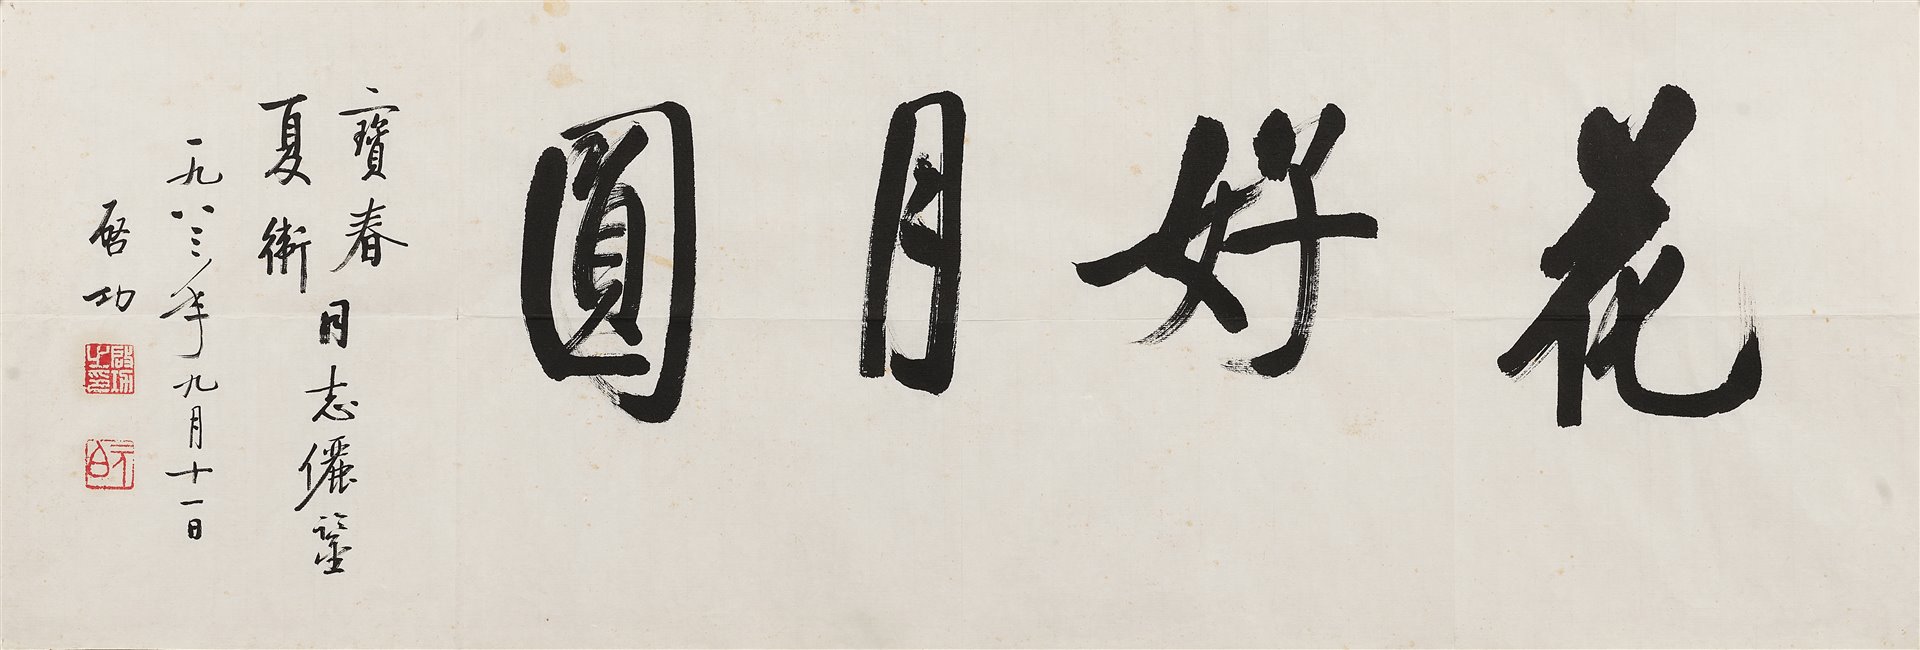 花好月圓
寶春
夏
同志儷鑒
一九八三年九月十一日
启功
啟功之印
元白